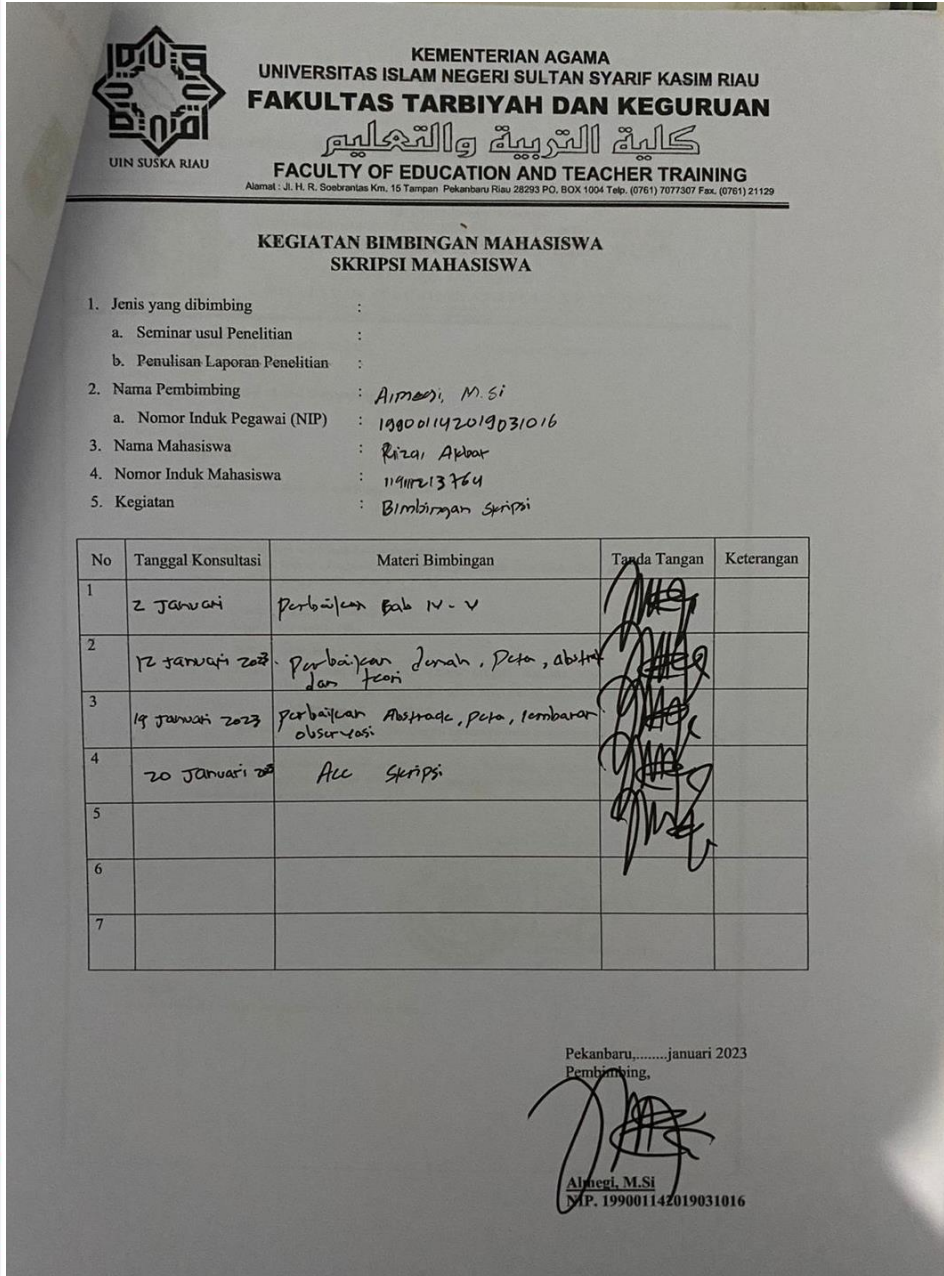 KEMENTERIAN AGAMA
UNIVERSITAS ISLAM NEGERI SULTAN SYARIF KASIM RIAU
FAKULTAS TARBIYAH DAN KEGURUAN
كلية التربية والتعليم
FACULTY OF EDUCATION AND TEACHER TRAINING
Alamat : Jl. H. R. Soebrantas Km. 15 Tampan Pekanbaru Riau 28293 PO. BOX 1004 Telp. (0761) 7077307 Fax. (0761) 21129
UIN SUSKA RIAU
KEGIATAN BIMBINGAN MAHASISWA
SKRIPSI MAHASISWA
1. Jenis yang dibimbing :
a. Seminar usul Penelitian :
b. Penulisan Laporan Penelitian :
2. Nama Pembimbing : Almegi, M.Si
a. Nomor Induk Pegawai (NIP) : 199001142019031016
3. Nama Mahasiswa : Rizal Akbar
4. Nomor Induk Mahasiswa :
5. Kegiatan : Bimbingan Skripsi
No Tanggal Konsultasi Materi Bimbingan Tanda Tangan Keterangan
1 2 Januari Perbaikan Bab IV - V
2 12 Januari 2023. Perbaikan denah, Peta, abstrak
dan teori
3 19 Januari 2023 Perbaikan Abstrack, peta, lembaran
observasi
4 20 Januari Acc Skripsi
5
6
7
Pekanbaru,........januari 2023
Pembimbing,
Almegi, M.Si
NIP. 199001142019031016